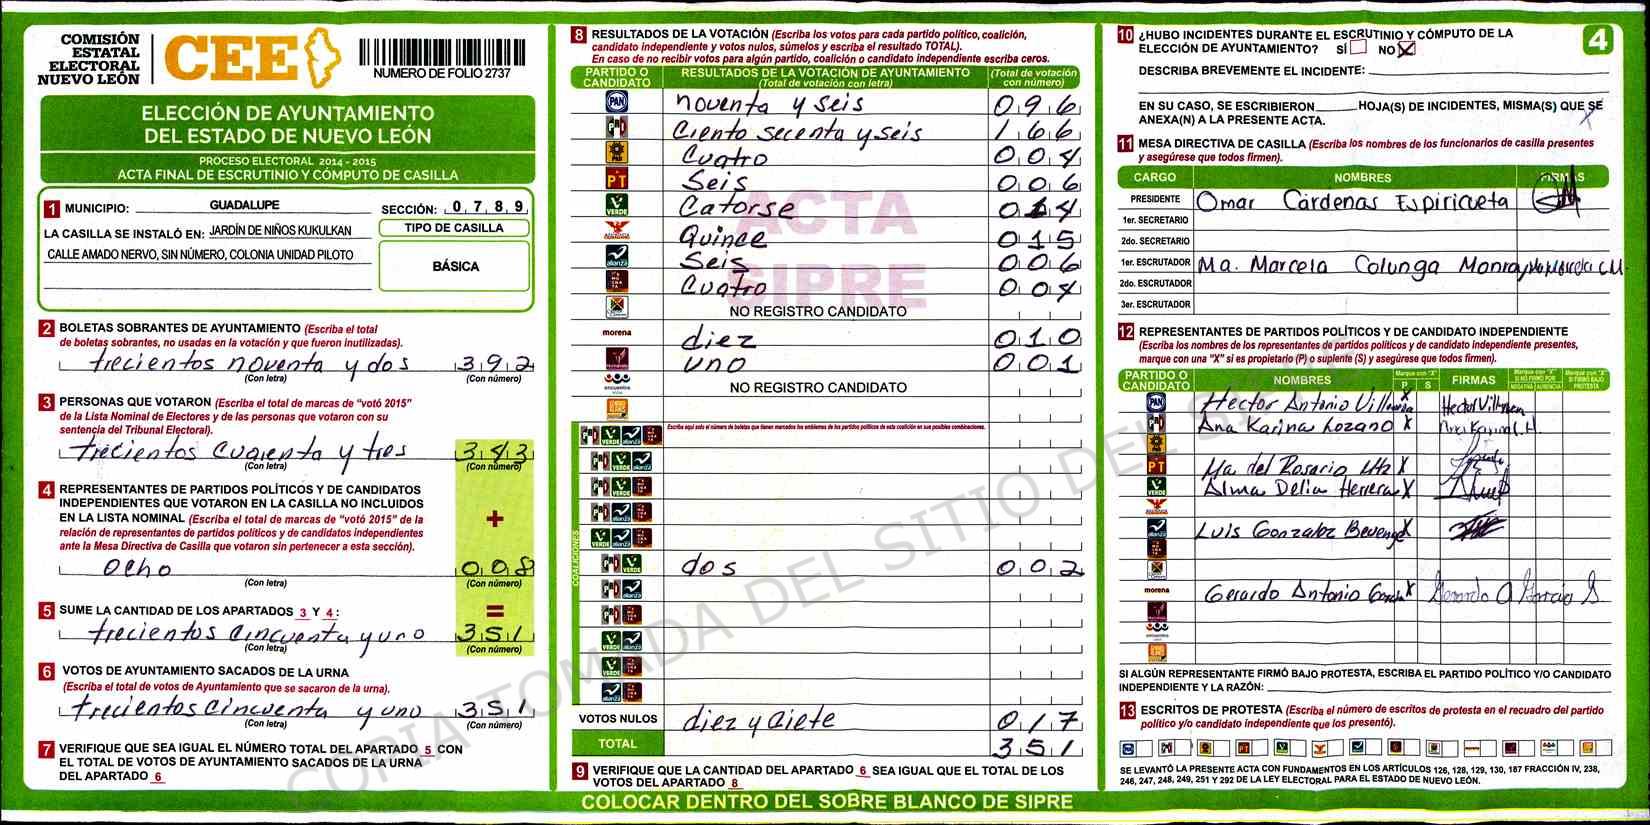 COMISIÓN
ESTATAL
ELECTORAL
NUEVO LEÓN
CEE
NUMERO DE FOLIO 2737
ELECCIÓN DE AYUNTAMIENTO
DEL ESTADO DE NUEVO LEÓN
PROCESO ELECTORAL 2014 - 2015
ACTA FINAL DE ESCRUTINIO Y CÓMPUTO DE CASILLA
1 MUNICIPIO: GUADALUPE SECCIÓN: 0 7 8 9
LA CASILLA SE INSTALÓ EN: JARDÍN DE NIÑOS KUKULKAN
CALLE AMADO NERVO, SIN NÚMERO, COLONIA UNIDAD PILOTO
TIPO DE CASILLA
BÁSICA
2 BOLETAS SOBRANTES DE AYUNTAMIENTO (Escriba el total
de boletas sobrantes, no usadas en la votación y que fueron inutilizadas).
trecientos noventa y dos 392
(Con letra) (Con número)
3 PERSONAS QUE VOTARON (Escriba el total de marcas de "votó 2015"
de la Lista Nominal de Electores y de las personas que votaron con su
sentencia del Tribunal Electoral).
trecientos cuarenta y tres 343
(Con letra) (Con número)
4 REPRESENTANTES DE PARTIDOS POLÍTICOS Y DE CANDIDATOS
INDEPENDIENTES QUE VOTARON EN LA CASILLA NO INCLUIDOS
EN LA LISTA NOMINAL (Escriba el total de marcas de "votó 2015" de la
relación de representantes de partidos políticos y de candidatos independientes
ante la Mesa Directiva de Casilla que votaron sin pertenecer a esta sección).
+
ocho 008
(Con letra) (Con número)
5 SUME LA CANTIDAD DE LOS APARTADOS 3 Y 4: =
trecientos cincuenta y uno 351
(Con letra) (Con número)
6 VOTOS DE AYUNTAMIENTO SACADOS DE LA URNA
(Escriba el total de votos de Ayuntamiento que se sacaron de la urna).
trecientos cincuenta y uno 351
(Con letra) (Con número)
7 VERIFIQUE QUE SEA IGUAL EL NÚMERO TOTAL DEL APARTADO 5 CON
EL TOTAL DE VOTOS DE AYUNTAMIENTO SACADOS DE LA URNA
DEL APARTADO 6
8 RESULTADOS DE LA VOTACIÓN (Escriba los votos para cada partido político, coalición,
candidato independiente y votos nulos, súmelos y escriba el resultado TOTAL).
En caso de no recibir votos para algún partido, coalición o candidato independiente escriba ceros.
PARTIDO O CANDIDATO RESULTADOS DE LA VOTACIÓN DE AYUNTAMIENTO (Total de votación con letra) (Total de votación con número)
PAN noventa y seis 096
PRI Ciento secenta y seis 166
PRD Cuatro 004
PT Seis 006
VERDE Catorse 014
Quince 015
alianza Seis 006
Cuatro 004
NO REGISTRO CANDIDATO
morena diez 010
uno 001
encuentro NO REGISTRO CANDIDATO
ACTA
SIPRE
COALICIONES
Escriba aquí solo el número de boletas que tienen marcados los emblemas de los partidos políticos de esta coalición en sus posibles combinaciones.
PRI VERDE alianza
PRI VERDE alianza
PRI VERDE
PRI alianza
VERDE alianza
PRI VERDE dos 002
PRI alianza
PRI
VERDE alianza
VERDE
alianza
VOTOS NULOS diez y ciete 017
TOTAL 351
9 VERIFIQUE QUE LA CANTIDAD DEL APARTADO 6 SEA IGUAL QUE EL TOTAL DE LOS
VOTOS DEL APARTADO 8
COLOCAR DENTRO DEL SOBRE BLANCO DE SIPRE
10 ¿HUBO INCIDENTES DURANTE EL ESCRUTINIO Y CÓMPUTO DE LA
ELECCIÓN DE AYUNTAMIENTO? SÍ NO X
4
DESCRIBA BREVEMENTE EL INCIDENTE:
EN SU CASO, SE ESCRIBIERON HOJA(S) DE INCIDENTES, MISMA(S) QUE SE
ANEXA(N) A LA PRESENTE ACTA.
11 MESA DIRECTIVA DE CASILLA (Escriba los nombres de los funcionarios de casilla presentes
y asegúrese que todos firmen).
CARGO NOMBRES FIRMAS
PRESIDENTE Omar Cárdenas Espiricueta
1er. SECRETARIO
2do. SECRETARIO
1er. ESCRUTADOR Ma. Marcela Colunga Monroy Ma Marcela C.M.
2do. ESCRUTADOR
3er. ESCRUTADOR
12 REPRESENTANTES DE PARTIDOS POLÍTICOS Y DE CANDIDATO INDEPENDIENTE
(Escriba los nombres de los representantes de partidos políticos y de candidato independiente presentes,
marque con una "X" si es propietario (P) o suplente (S) y asegúrese que todos firmen).
PARTIDO O CANDIDATO NOMBRES Marque con "X" P S FIRMAS Marque con "X" SI NO FIRMÓ POR NEGATIVA AUSENCIA Marque con "X" SI FIRMÓ BAJO PROTESTA
PAN Hector Antonio X
PRI Ana Karina Lozano X
PRD
PT Ma del Rosario Mtz X
VERDE Alma Delia Herrera X
alianza Luis Gonzalez X
morena Gerardo Antonio X Gerardo A Garcia S.
SI ALGÚN REPRESENTANTE FIRMÓ BAJO PROTESTA, ESCRIBA EL PARTIDO POLÍTICO Y/O CANDIDATO
INDEPENDIENTE Y LA RAZÓN:
13 ESCRITOS DE PROTESTA (Escriba el número de escritos de protesta en el recuadro del partido
político y/o candidato independiente que los presentó).
SE LEVANTÓ LA PRESENTE ACTA CON FUNDAMENTOS EN LOS ARTÍCULOS 126, 128, 129, 130, 187 FRACCIÓN IV, 238,
246, 247, 248, 249, 251 Y 292 DE LA LEY ELECTORAL PARA EL ESTADO DE NUEVO LEÓN.
COPIA TOMADA DEL SITIO DEL SIPRE